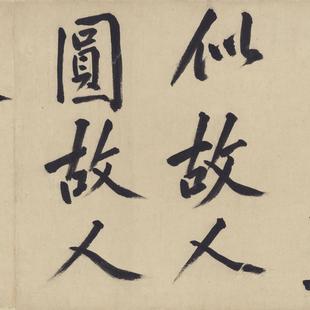 似故人
圓故人